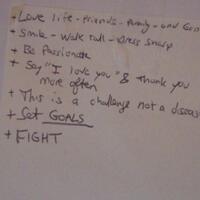 + Love life - Friends - Family - and God
+ Smile - Walk tall - Dress sharp
+ Be Passionate
+ Say "I love you" & Thank you
more often
+ This is a challenge not a diseas
+ Set GOALS
+ FIGHT